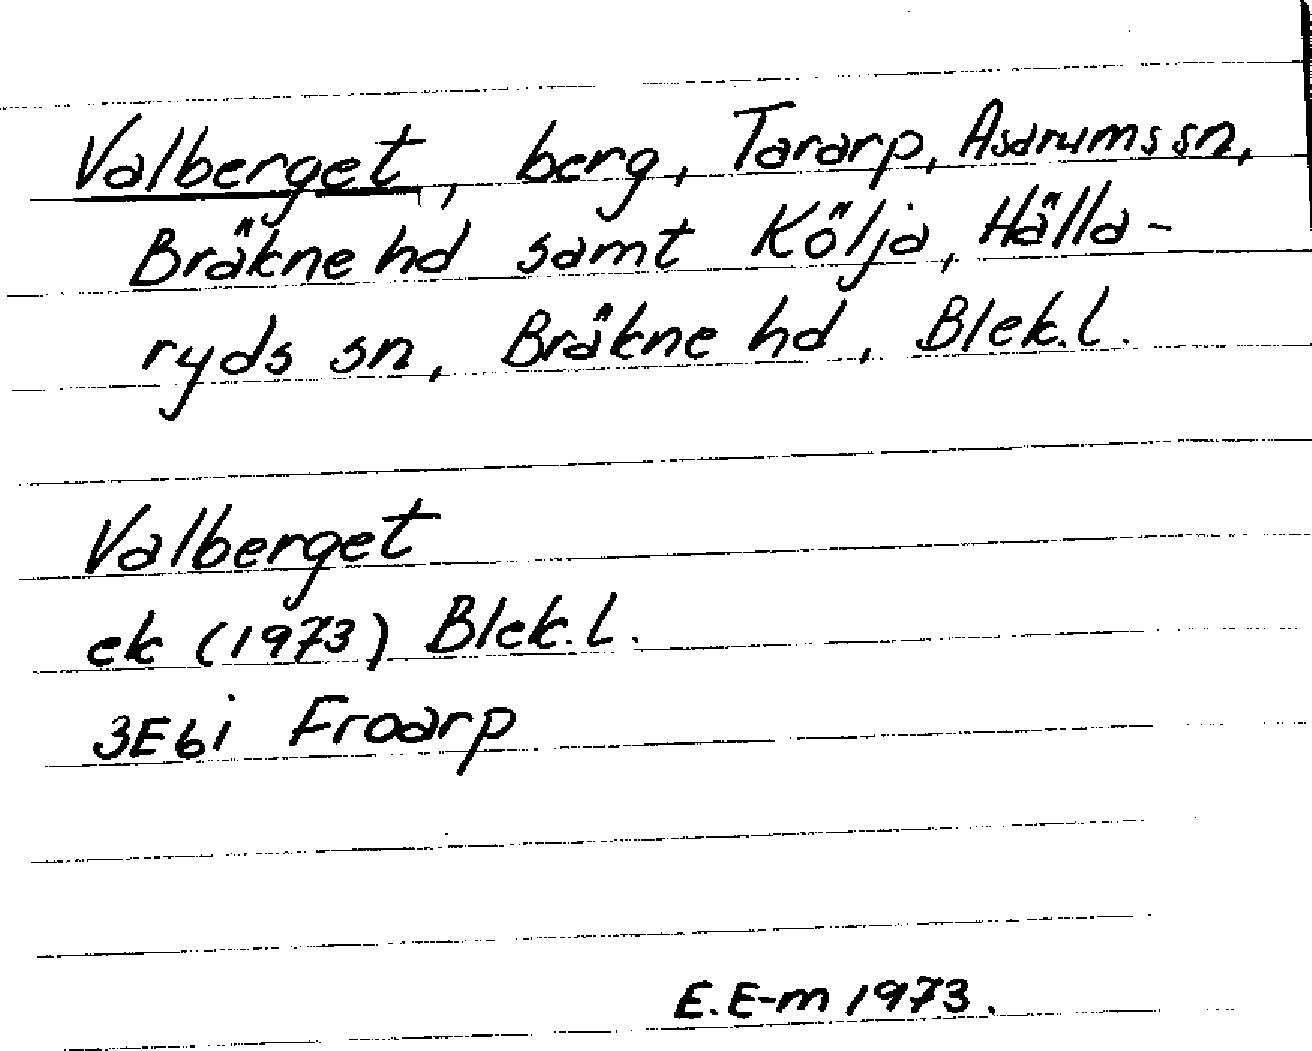 Valberget, berg, Tararp, Asarums sn,
Bräkne hd samt Kölja, Hälla-
ryds sn, Bräkne hd, Blek.l.
Valberget
ek (1973) Blek.L.
3E6i Froarp
E.E-m 1973.